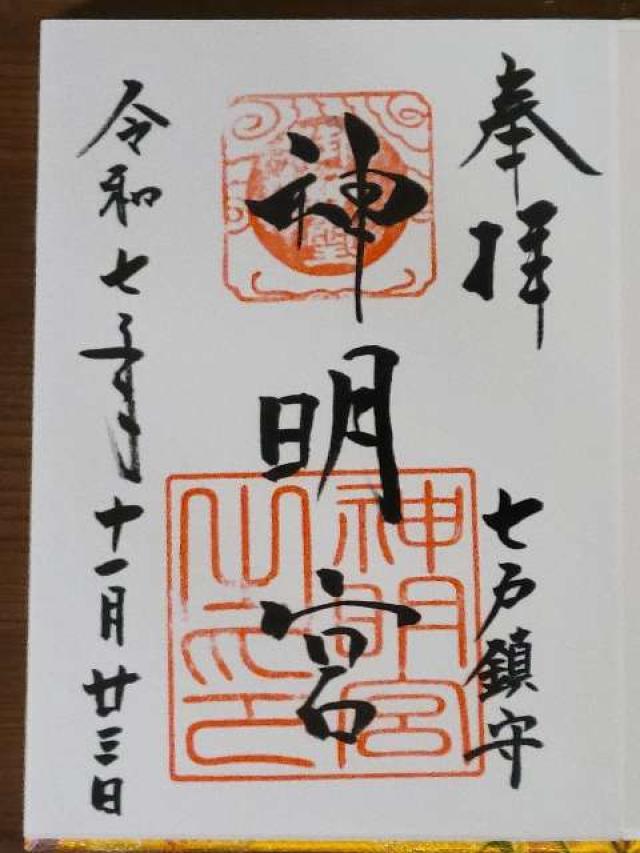 奉拝
七戸鎮守
神明宮
神明宮
之印
令和七年十一月廿三日